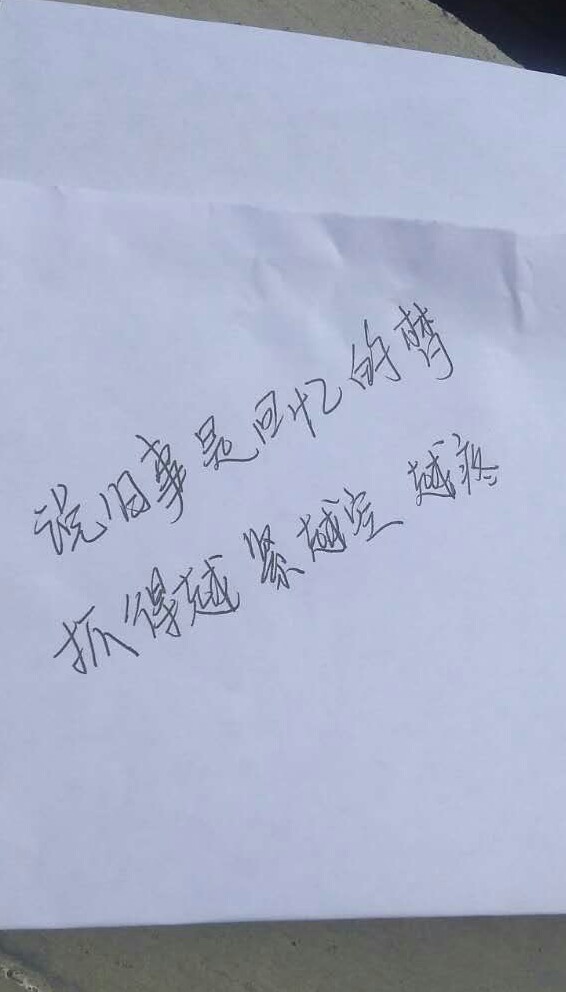 说旧事是回忆的梦
抓得越紧越空 越疼